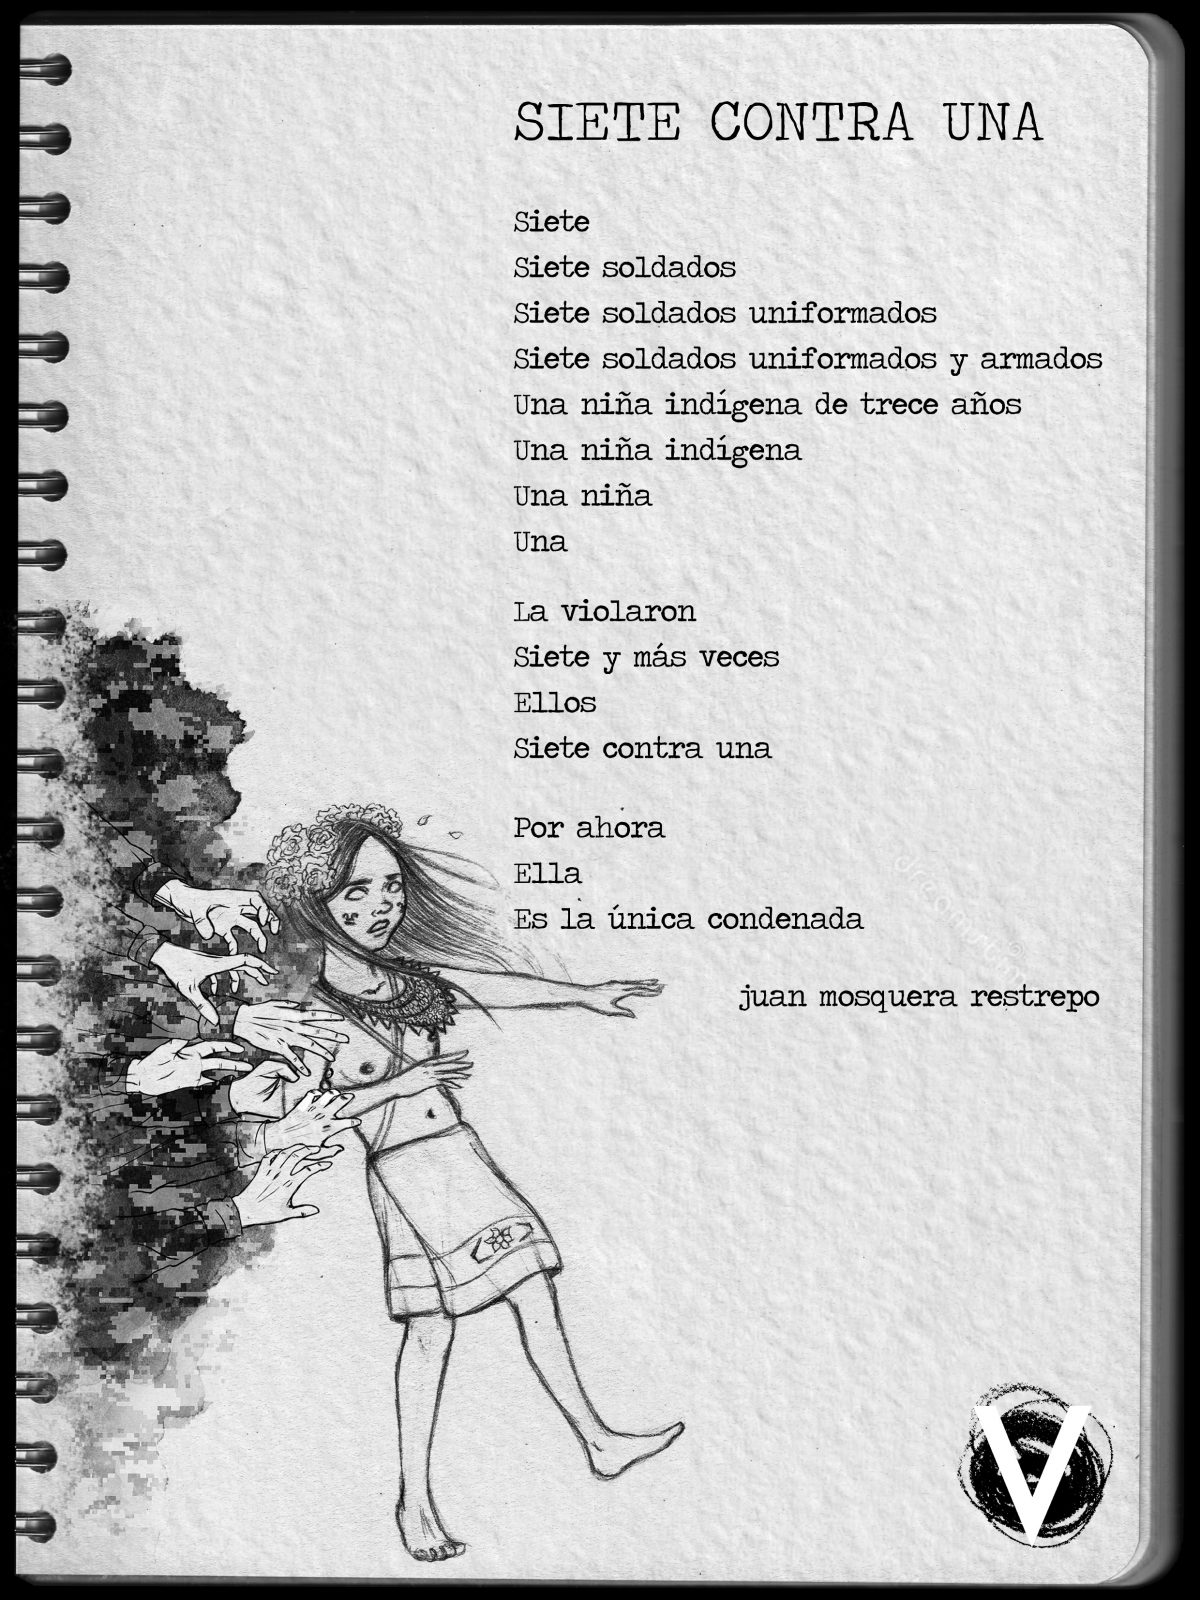 SIETE CONTRA UNA
Siete
Siete soldados
Siete soldados uniformados
Siete soldados uniformados y armados
Una niña indígena de trece años
Una niña indígena
Una niña
Una
La violaron
Siete y más veces
Ellos
Siete contra una
Por ahora
Ella
Es la única condenada
juan mosquera restrepo
V